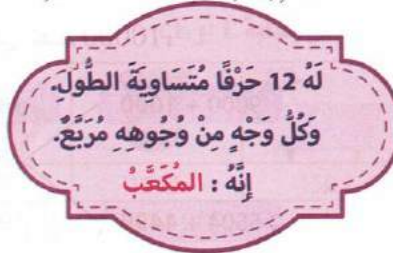 لَهُ 12 حَرْفًا مُتَسَاوِيَةَ الطُّولِ.
وَكُلُّ وَجْهٍ مِنْ وُجُوهِهِ مُرَبَّعٌ.
إِنَّهُ : المُكَعَّبُ